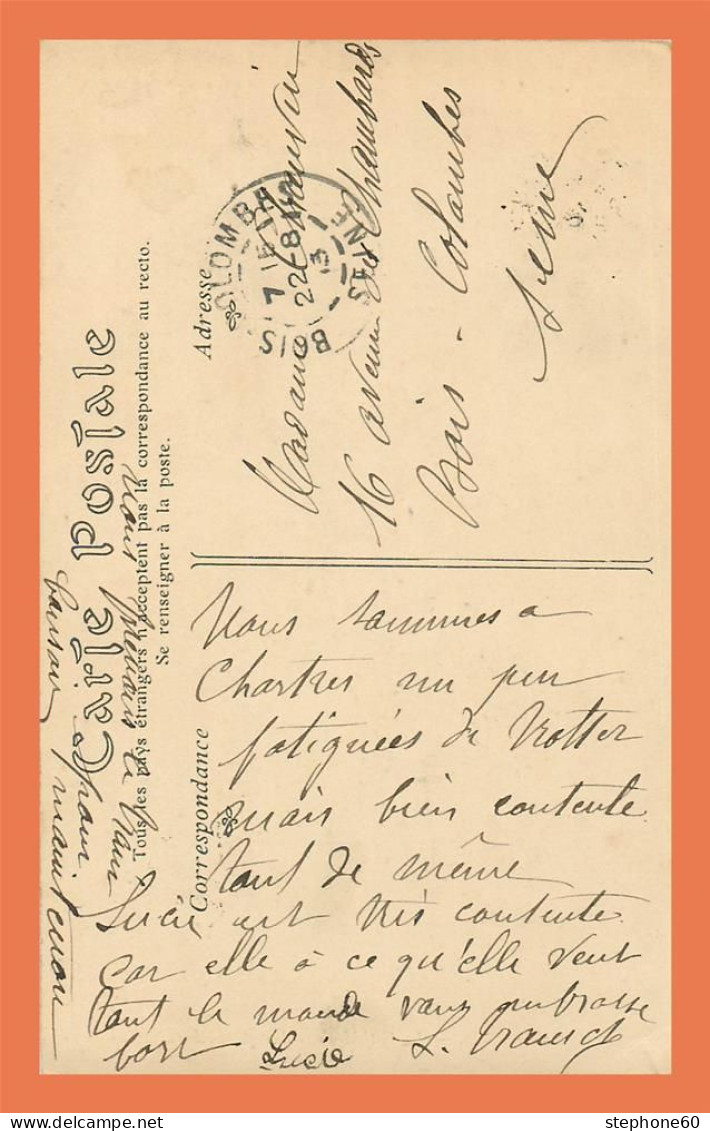 Carte Postale
Tous les pays étrangers n'acceptent pas la correspondance au recto.
Se renseigner à la poste.
Adresse
BOIS COLOMBES
SEINE
Madame
16 avenue des Chambards
Bois - Colombes
Seine
Correspondance
Nous sommes a
Chartres un peu
fatiguées de trotter
mais bien contente
tout de même
Lucie est très contente
car elle à ce qu'elle veut
tout le monde vous embrasse
fort Lucie L.
nous prenons le train
pour
maintenon
bonsoir
stephone60